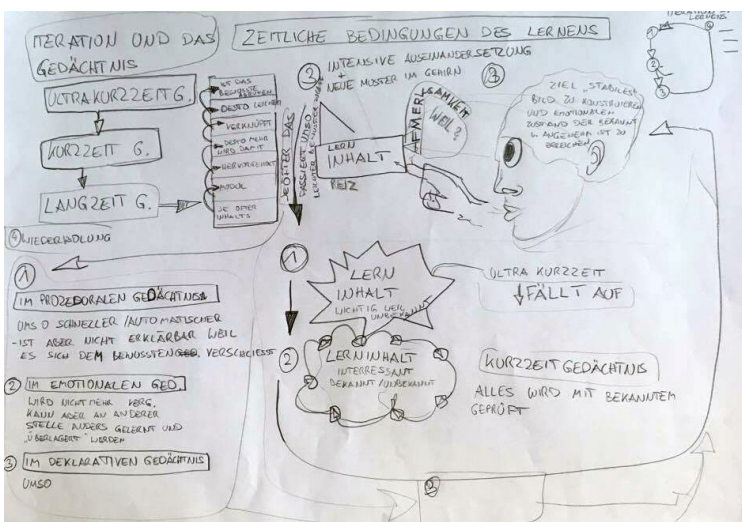 ITERATION UND DAS
GEDÄCHTNIS
ULTRAKURZZEIT G.
KURZZEIT G.
LANGZEIT G.
④ WIEDERHOLUNG
IST DAS
DESTO LEICHTER
VERKNÜPFT
DESTO MEHR
WIRD DAMIT
HERVORGEHOLT
MODUL
JE ÖFTER
INHALTS
JE ÖFTER DAS
PASSIERT UMSO
ZEITLICHE BEDINGUNGEN DES LERNENS
③ INTENSIVE AUSEINANDERSETZUNG
+
NEUE MUSTER IM GEHIRN
LERN
INHALT
REIZ
WEIL?
③
ZIEL "STABILES"
BILD ZU KONSTRUIEREN
UND EMOTIONALEN
ZUSTAND DER BEKANNT
U. ANGENEHM IST ZU
ERREICHEN
①
②
③
①
LERN
INHALT
WICHTIG WEIL
UNBEKANNT
ULTRA KURZZEIT
FÄLLT AUF
②
LERNINHALT
INTERRESSANT
BEKANNT/UNBEKANNT
KURZZEITGEDÄCHTNIS
ALLES WIRD MIT BEKANNTEM
GEPRÜFT
①
IM PROZEDORALEN GEDÄCHTNIS
UMSO SCHNELLER/AUTOMATISCHER
- IST ABER NICHT ERKLÄRBAR WEIL
ES SICH DEM BEWUSSTEN VERSCHLIESST
② IM EMOTIONALEN GED
WIRD NICHT MEHR VERG.
KANN ABER AN ANDERER
STELLE ANDERS GELERNT UND
"ÜBERLAGERT" WERDEN
③ IM DEKLARATIVEN GEDÄCHTNIS
UMSO